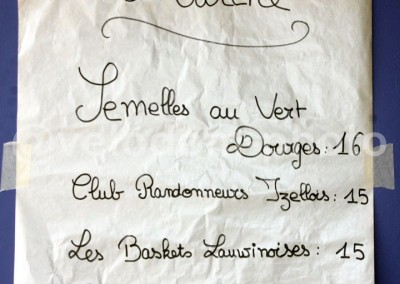 Semelles au Vert
Dourges : 16
Club Randonneurs Izellois : 15
Les Baskets Lauwinoises : 15